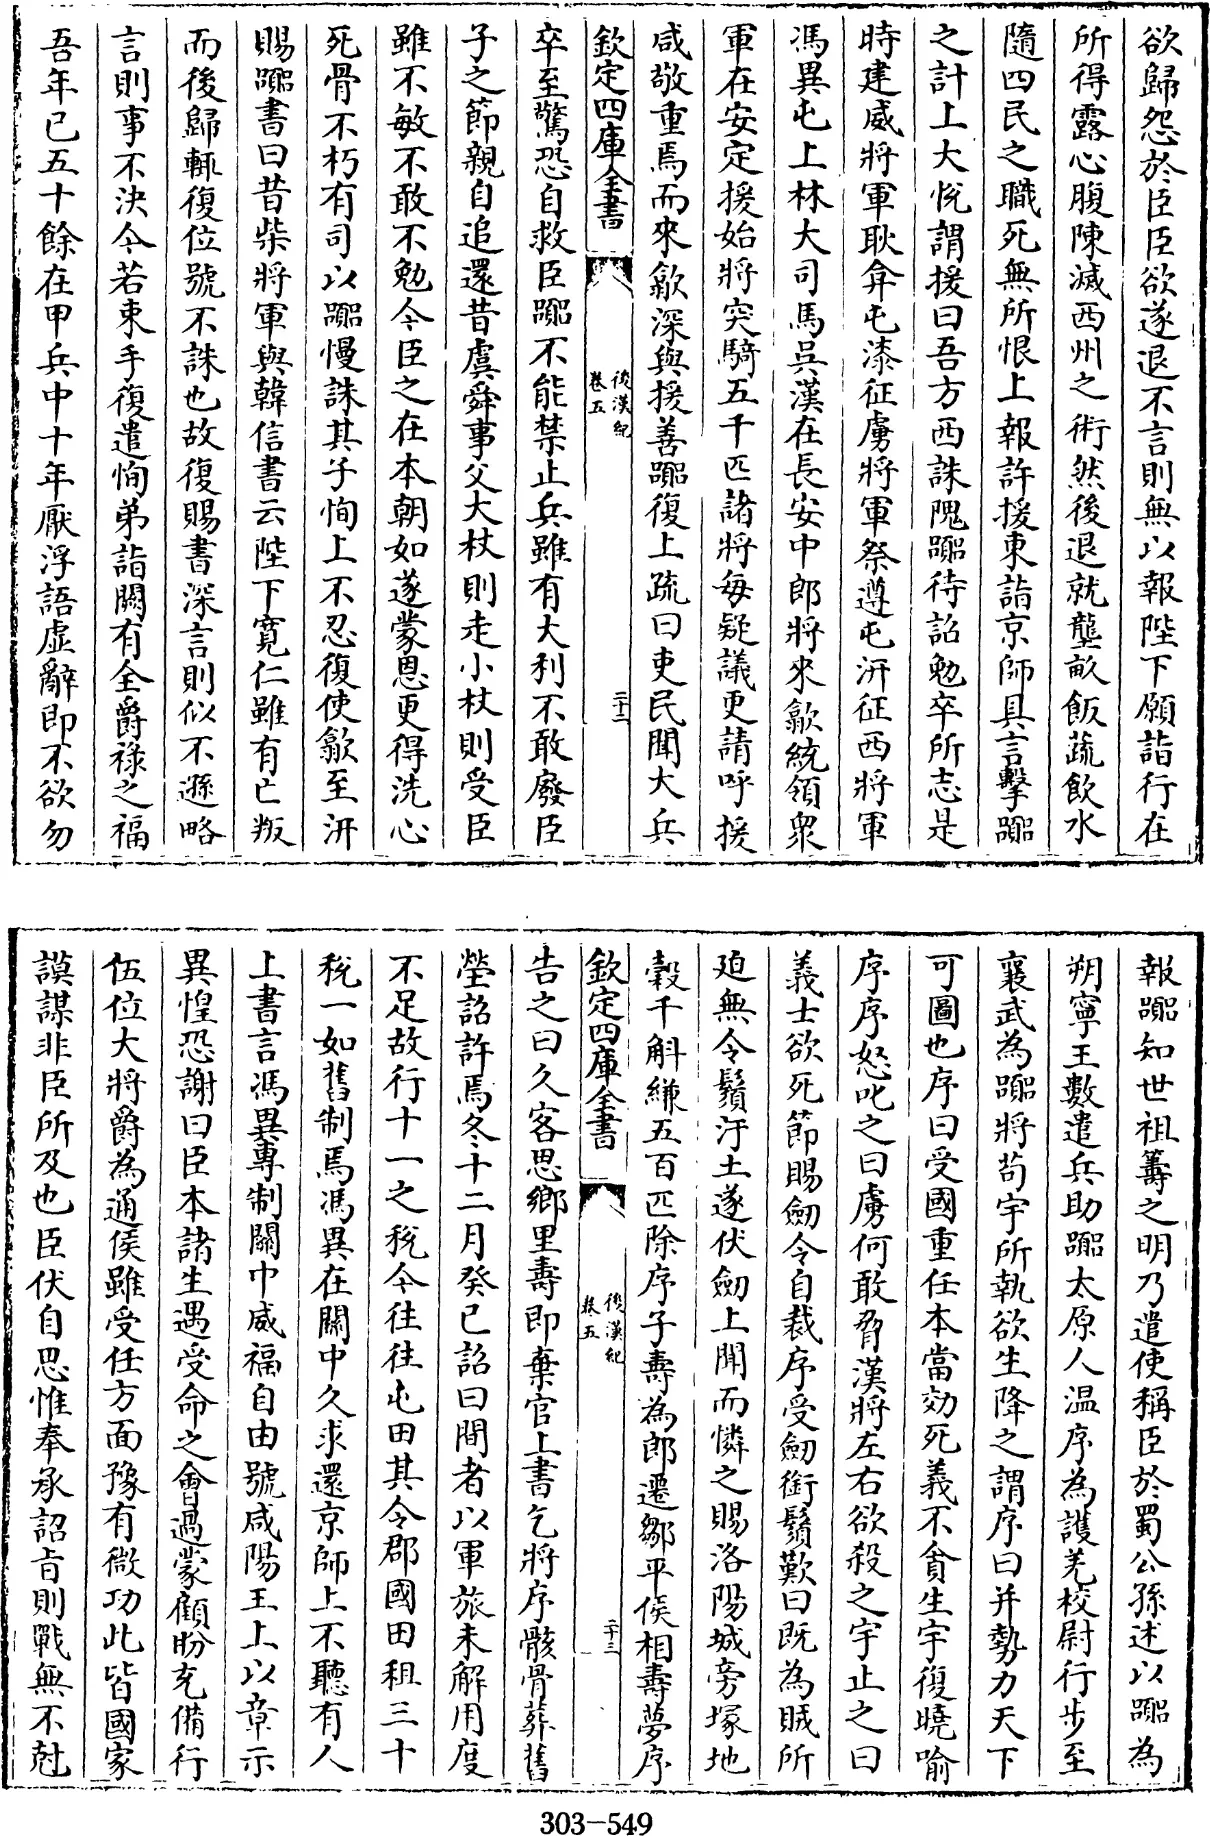 欲歸怨於臣臣欲遂退不言則無以報陛下願詣行在
所得露心腹陳滅西州之術然後退就壟畝飯蔬飲水
隨四民之職死無所恨上報許援東詣京師具言擊囂
之計上大悅謂援曰吾方西誅隗囂待詔勉卒所志是
時建威將軍耿弇屯漆征虜將軍祭遵屯汧征西將軍
馮異屯上林大司馬吳漢在長安中郎將來歙統領衆
軍在安定援始將突騎五千匹諸將每疑議更請呼援
咸敬重焉而來歙深與援善囂復上疏曰吏民聞大兵
欽定四庫全書
後漢紀
卷五
二十二
卒至驚恐自救臣囂不能禁止兵雖有大利不敢廢臣
子之節親自追還昔虞舜事父大杖則走小杖則受臣
雖不敏不敢不勉今臣之在本朝如遂蒙恩更得洗心
死骨不朽有司以囂慢誅其子恂上不忍復使歙至汧
賜囂書曰昔柴將軍與韓信書云陛下寬仁雖有亡叛
而後歸輒復位號不誅也故復賜書深言則似不遜略
言則事不決今若束手復遣恂弟詣闕有全爵祿之福
吾年已五十餘在甲兵中十年厭浮語虛辭即不欲勿
報囂知世祖籌之明乃遣使稱臣於蜀公孫述以囂為
朔寧王數遣兵助囂太原人温序為護羌校尉行步至
襄武為囂將苟宇所執欲生降之謂序曰并勢力天下
可圖也序曰受國重任本當効死義不貪生宇復曉喻
序序怒叱之曰虜何敢脅漢將左右欲殺之宇止之曰
義士欲死節賜劒令自裁序受劒銜鬚歎曰既為賊所
迫無令鬚汙土遂伏劒上聞而憐之賜洛陽城旁塚地
穀千斛縑五百匹除序子壽為郎遷鄒平侯相壽夢序
欽定四庫全書
後漢紀
卷五
二十三
告之曰久客思鄉里壽即棄官上書乞將序骸骨葬舊
塋詔許焉冬十二月癸巳詔曰間者以軍旅未解用度
不足故行十一之稅今往往屯田其令郡國田租三十
稅一如舊制焉馮異在關中久求還京師上不聽有人
上書言馮異專制關中威福自由號咸陽王上以章示
異惶恐謝曰臣本諸生遇受命之會過蒙顧盼充備行
伍位大將爵為通侯雖受任方面豫有微功此皆國家
謨謀非臣所及也臣伏自思惟奉承詔旨則戰無不尅
303-549